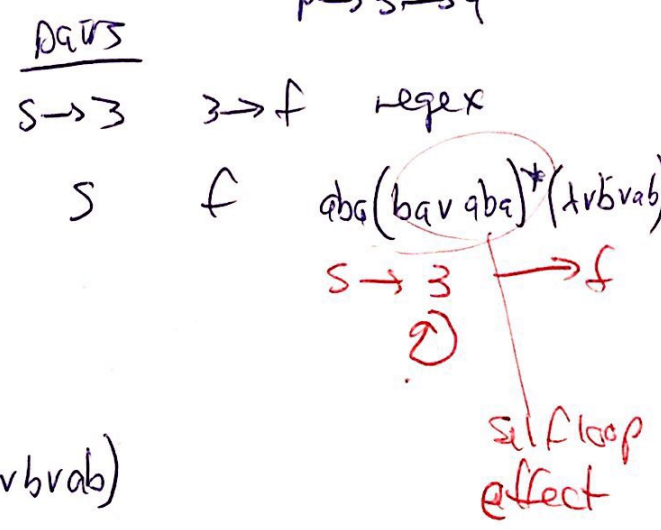 Pairs
s→3 3→f regex
s f aba(ba∨aba)*(λ∨b∨ab)
s → 3 → f
self loop
effect
∨b∨ab)